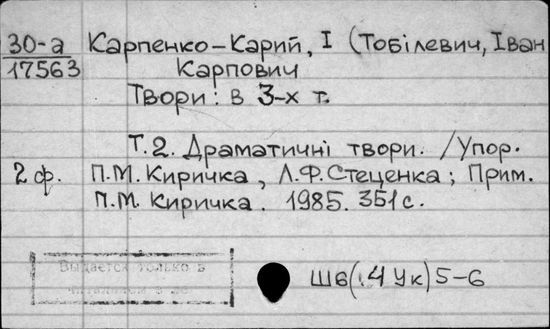 30-а Карпенко-Карий, І (Тобілевич, Іван
17563 Карпович
Твори: в 3-х т.
Т.2. Драматичні твори. /Упор.
2 ф. П.М. Киричка, Л.Ф. Стеценка; Прим.
П.М. Киричка. 1985. 351с.
Выдается только в
Ш6(.4 Ук)5-6